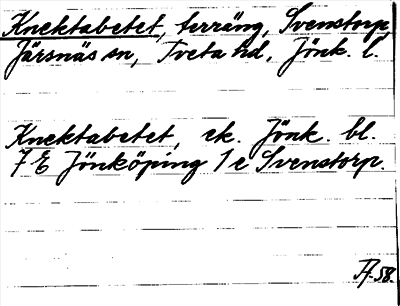 Knektabetet, terräng, Svenstorp,
Järsnäs sn, Tveta hd, Jönk. l.
Knektabetet, ek. Jönk. bl.
7 E Jönköping 1 e Svenstorp.
A-58.